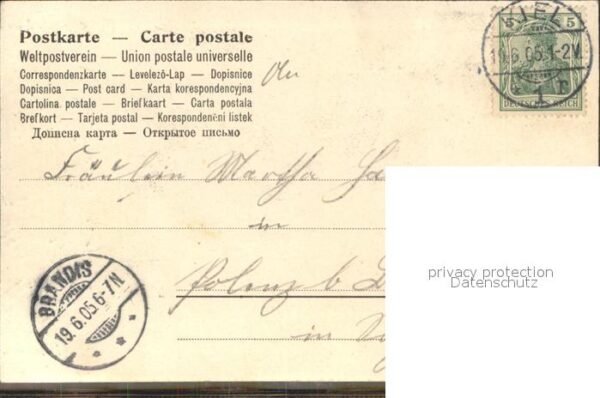 Postkarte — Carte postale
Weltpostverein — Union postale universelle
Correspondenzkarte — Levelezö-Lap — Dopisnice
Dopisnica — Post card — Karta korespondencyjna
Cartolina postale — Brief kaart — Carta postala
Brefkort — Tarjeta postal — Korespondenèni listek
Дописна карта — Открытое письмо
An
5 5
DEUTSCHES REICH
19.6.05.1-2V.
Fräulein Martha
in
Polenz b
in
BRANDIS
19.6.05.6-7N
privacy protection
Datenschutz